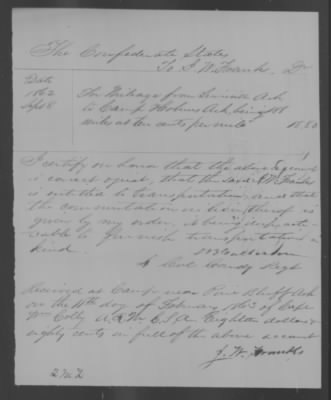 The Confederate States
To J. W. Franks, Dr
Date
1862
Sept 8
For Mileage from Ark
to Camp Holmes Ark, being 188
miles at ten cents per mile 18.80
I certify on honor that the above account
is correct & just, that the said J. W. Franks
is entitled to transportation, and that
the commutation in lieu thereof is
given by my order, it being impractic-
able to furnish transportation in
kind.
Col Comdg Regt
Received at Camp near Pine Bluff Ark
on the 11th day of February 1863 of Capt
Wm Colby A.Q.M. C.S.A. Eighteen dollars &
eighty cents in full of the above account
J. W. Franks